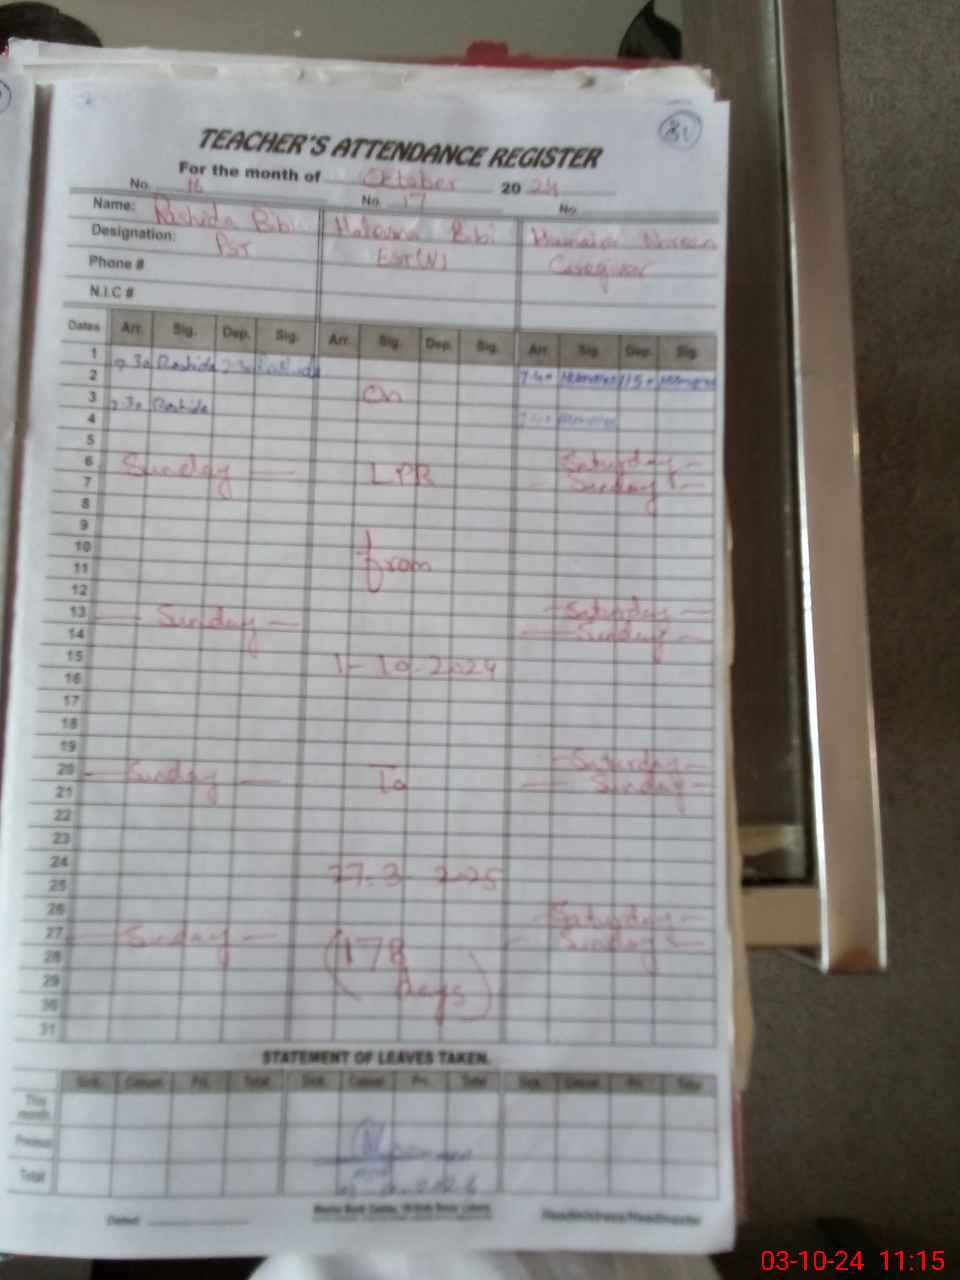 81
TEACHER'S ATTENDANCE REGISTER
For the month of October 20 24
No. 16 No. 17 No.
Name: Rashida Bibi Bibi
Designation: PST EST(N) Caregiver
Phone #
N.I.C #
Dates Arr. Sig. Dep. Sig. Arr. Sig. Dep. Sig. Arr. Sig. Dep. Sig.
1
7.30 Rashida
2
3 On
7.30 Rashida
4
5
6 Sunday LPR Saturday
7 Sunday
8
9
10
11 from
12
13 Sunday Saturday
14 Sunday
15
1-10-2024
16
17
18
19 Saturday
20 Sunday To Sunday
21
22
23
24
27.3 2025
25
26 Saturday
27 Sunday Sunday
28 (178
29 Days)
30
31
STATEMENT OF LEAVES TAKEN.
Sick. Casual Pri. Total Sick. Casual Pri. Total Sick. Casual Pri. Total
This month
Previous
Total
Dated:
Headmistress/Headmaster
03-10-24 11:15